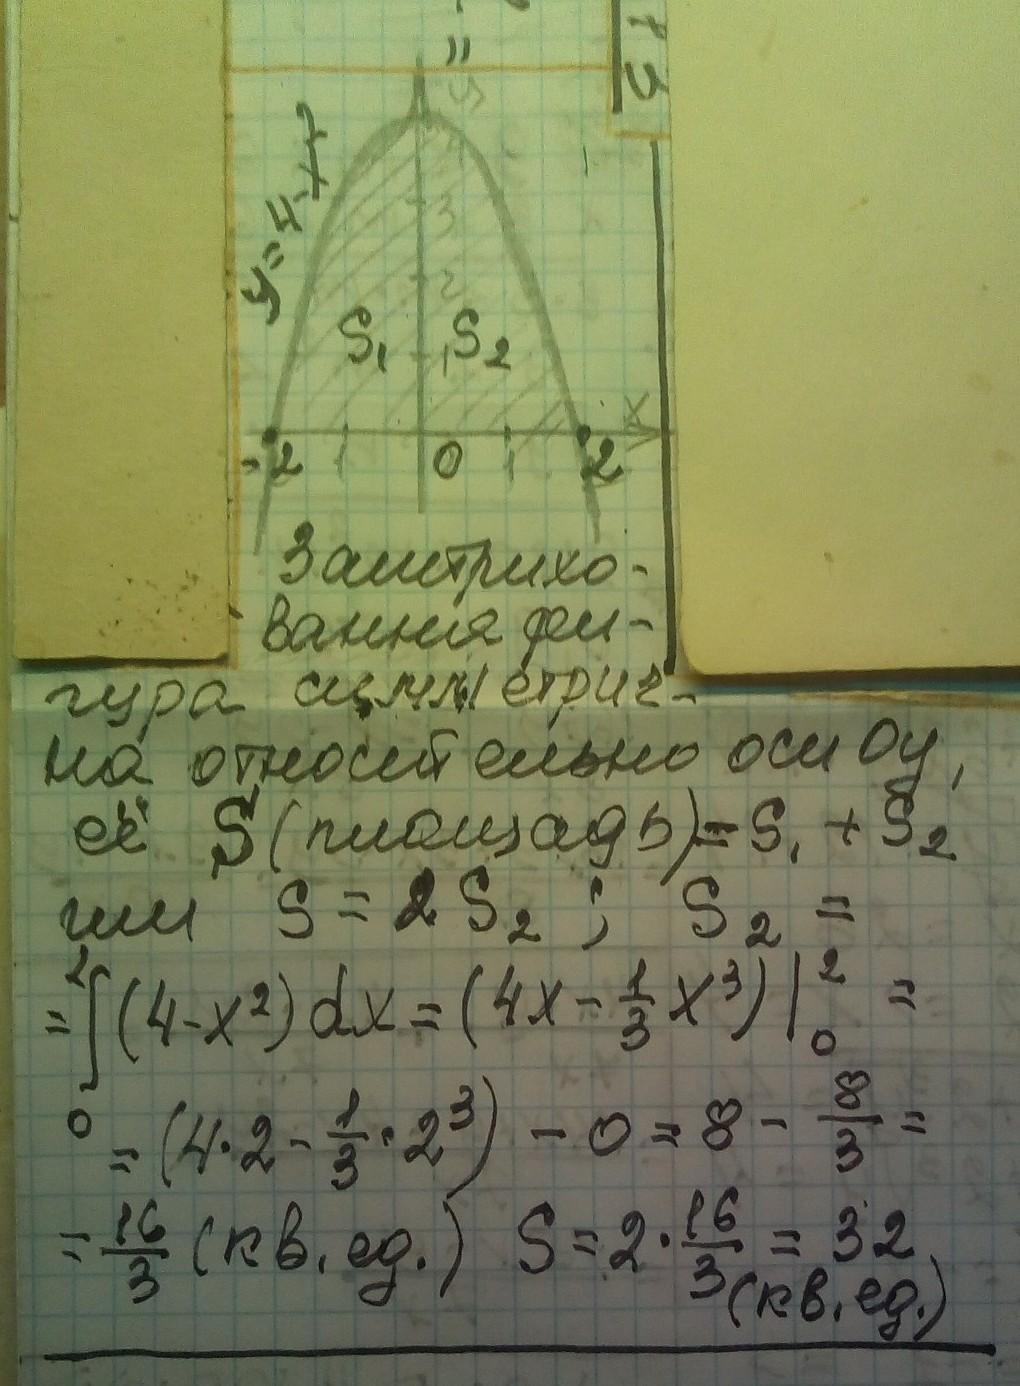 y=4-x²
3
2
S₁ 1 S₂
x
-2 1 0 1 2
Заштрихо-
ванная фи-
гура симметрич-
на относительно оси Oy,
её S(площадь)=S₁ + S₂
или S = 2S₂ ; S₂ =
=∫₀²(4-x²)dx=(4x-⅓x³)|₀² =
=(4·2-⅓·2³) - 0 = 8 - 8/3 =
=16/3 (кв. ед.) S=2·16/3 = 32
(кв. ед.)